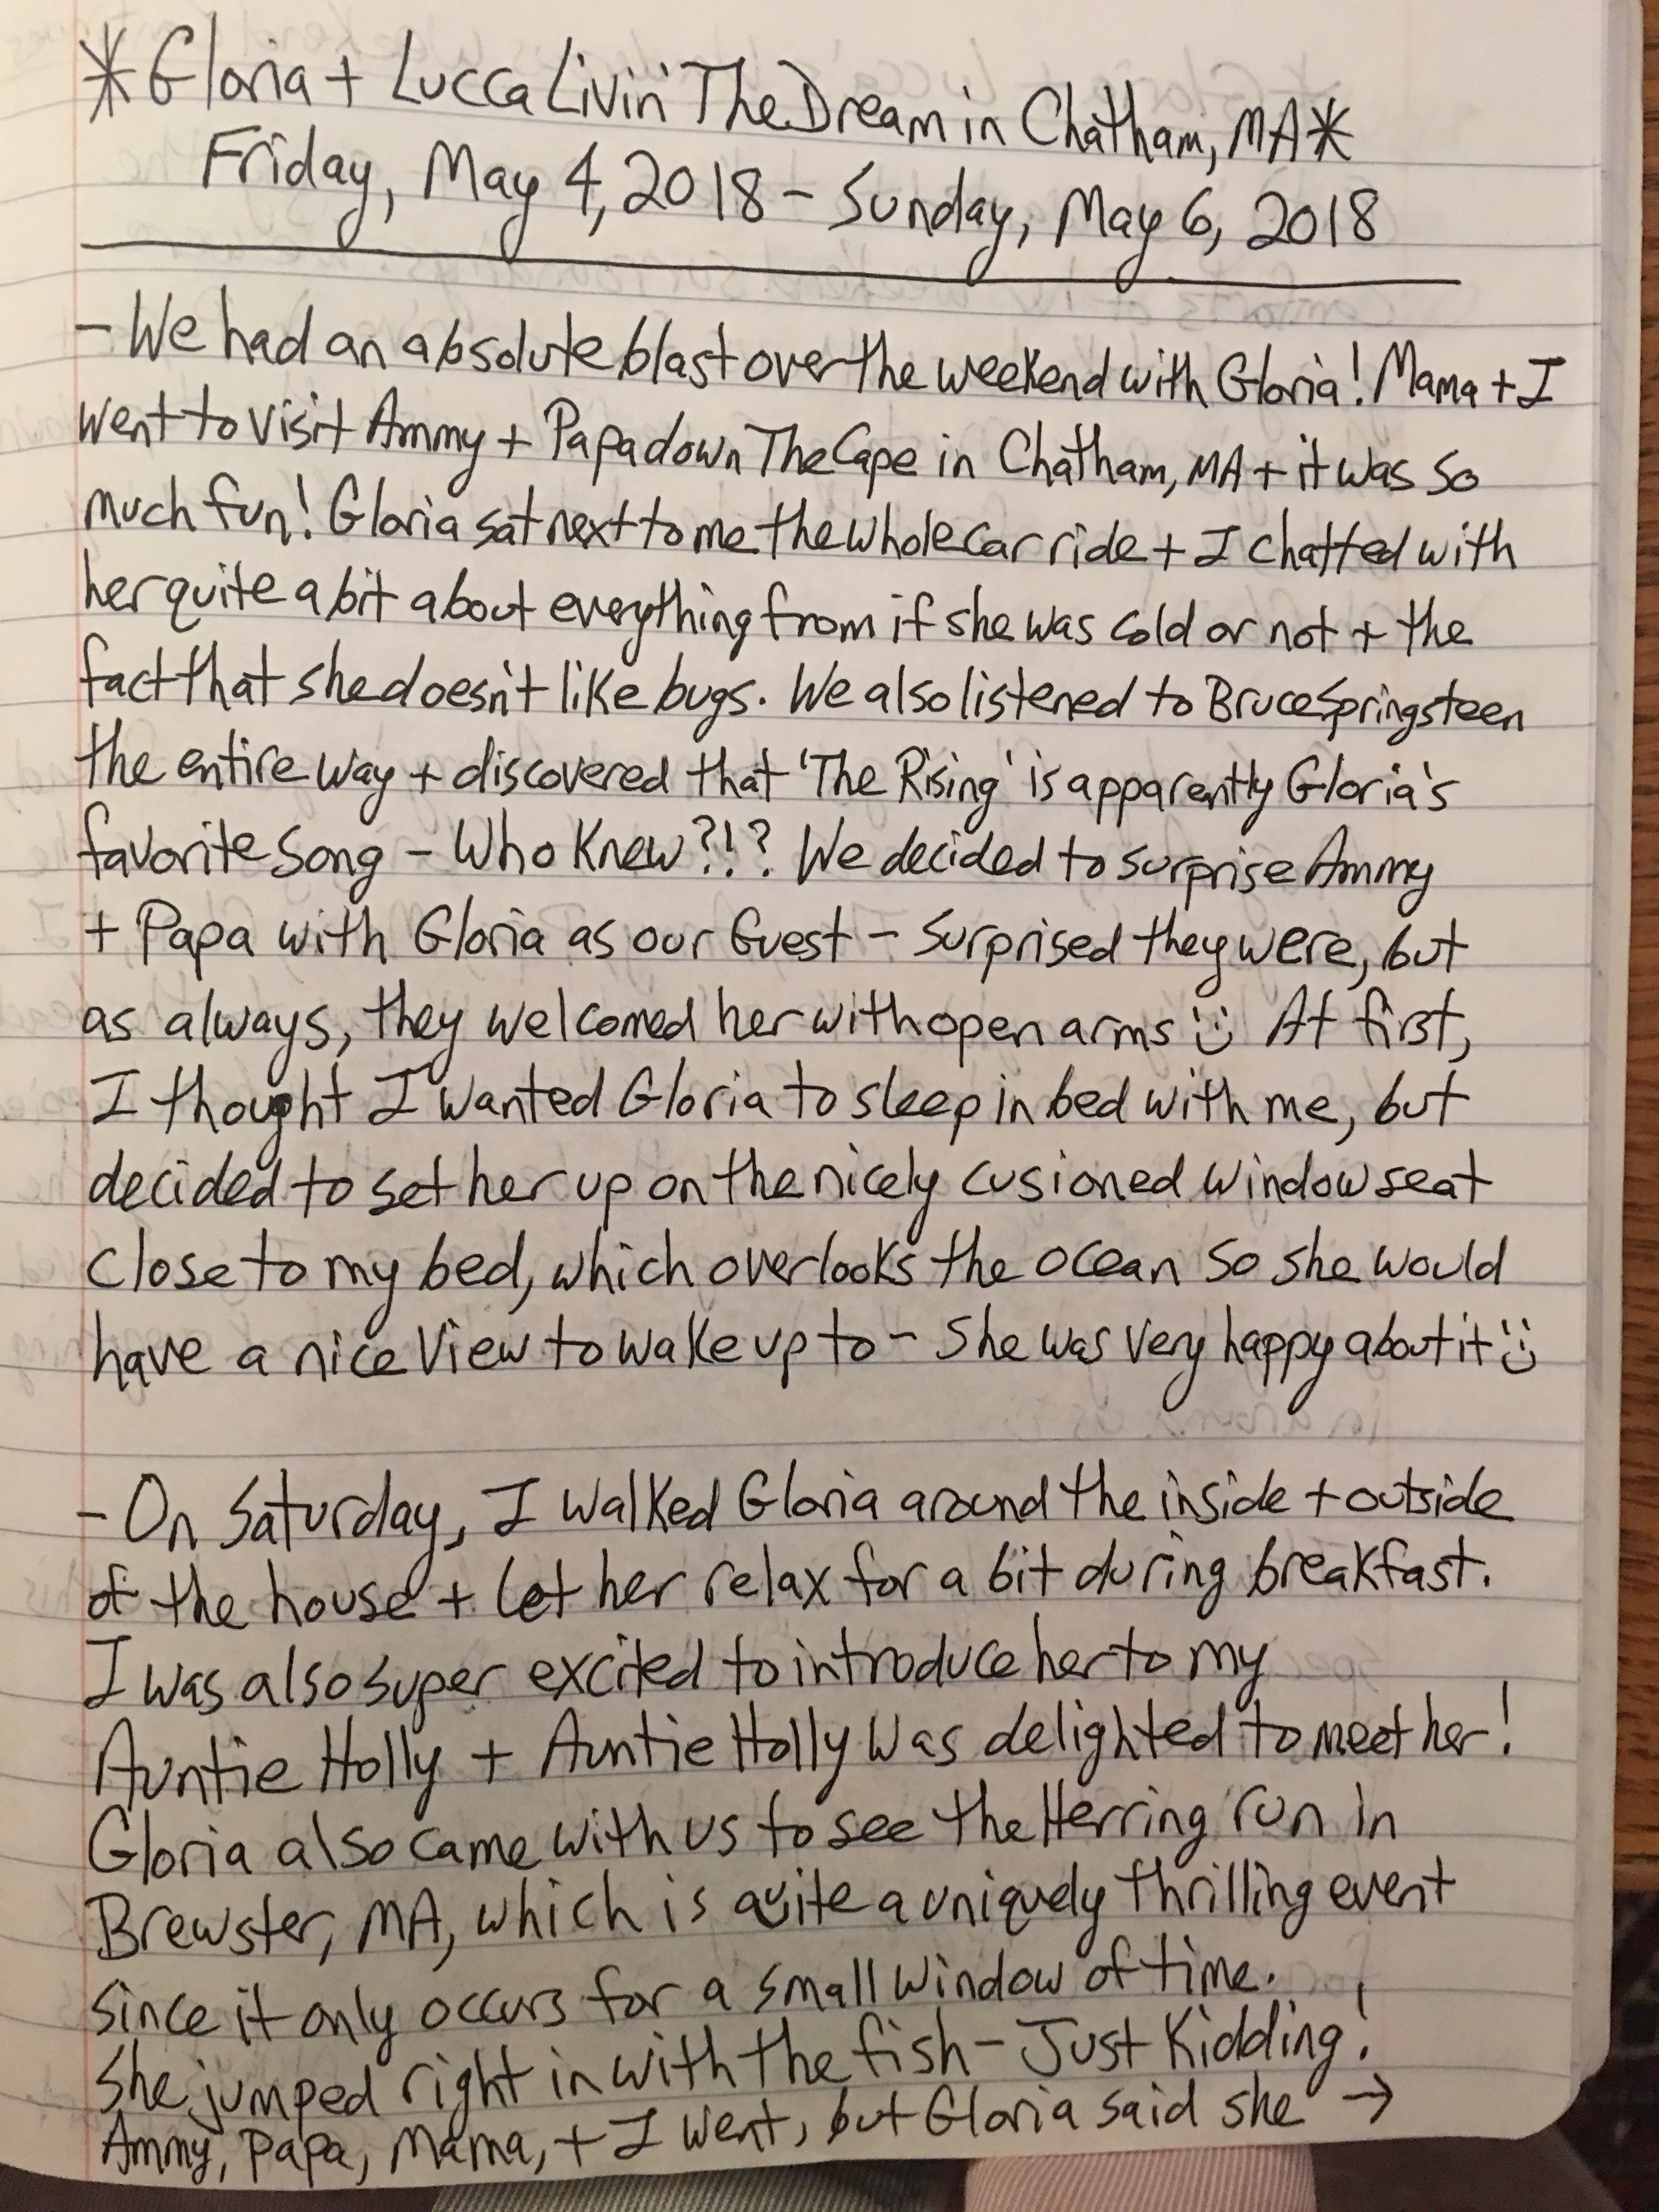 *Gloria + Lucca Livin' The Dream in Chatham, MA*
Friday, May 4, 2018 - Sunday, May 6, 2018
- We had an absolute blast over the weekend with Gloria! Mama + I
went to visit Ammy + Papa down The Cape in Chatham, MA + it was so
much fun! Gloria sat next to me the whole car ride + I chatted with
her quite a bit about everything from if she was cold or not + the
fact that she doesn't like bugs. We also listened to Bruce Springsteen
the entire way + discovered that 'The Rising' is apparently Gloria's
favorite song - Who Knew?!? We decided to surprise Ammy
+ Papa with Gloria as our Guest - Surprised they were, but
as always, they welcomed her with open arms :) At first,
I thought I wanted Gloria to sleep in bed with me, but
decided to set her up on the nicely cusioned window seat
close to my bed, which overlooks the ocean so she would
have a nice view to wake up to - She was very happy about it :)
- On Saturday, I walked Gloria around the inside + outside
of the house + let her relax for a bit during breakfast.
I was also super excited to introduce her to my
Auntie Holly + Auntie Holly was delighted to meet her!
Gloria also came with us to see the Herring run in
Brewster, MA, which is quite a uniquely thrilling event
since it only occurs for a small window of time.
She jumped right in with the fish - Just Kidding!
Ammy, Papa, Mama, + I went, but Gloria said she →